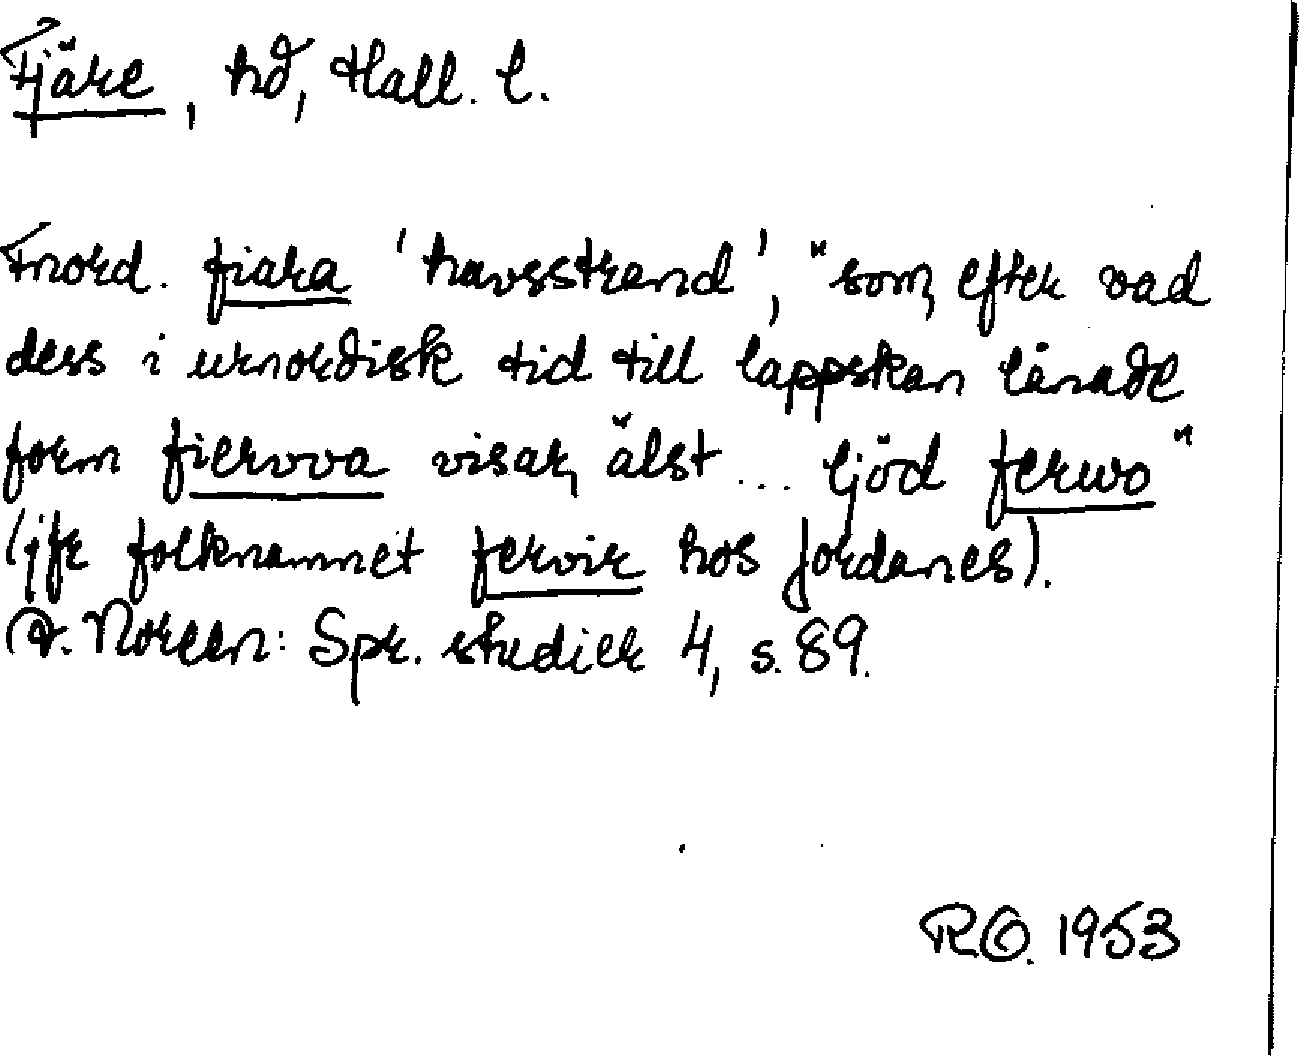 Fjäre, hd, Hall. l.
Fnord. fiara 'havsstrand', "som, efter vad
dess i urnordisk tid till lappskan lånade
form fiervva visar, älst ... ljöd ferwo"
(jfr folknamnet fervir hos Jordanes).
A. Noreen: Spr. studier 4, s. 89.
R.O. 1953